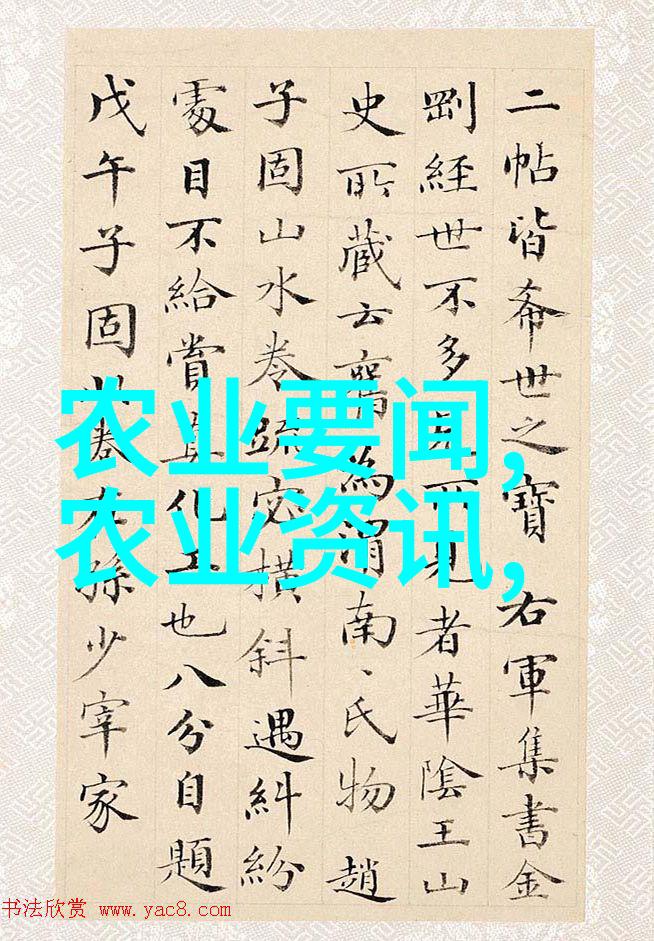 二帖皆希世之寶右軍集書金
剛經世不多見所見者華陰王山
史所藏云舊為渭南氏物趙
子固山水卷疏密橫斜遇糾紛
處目不給賞真化工也八分自題
戊午子固卷在孫少宰家
农业要闻,
农业资讯,
书法欣赏 www.yac8.com